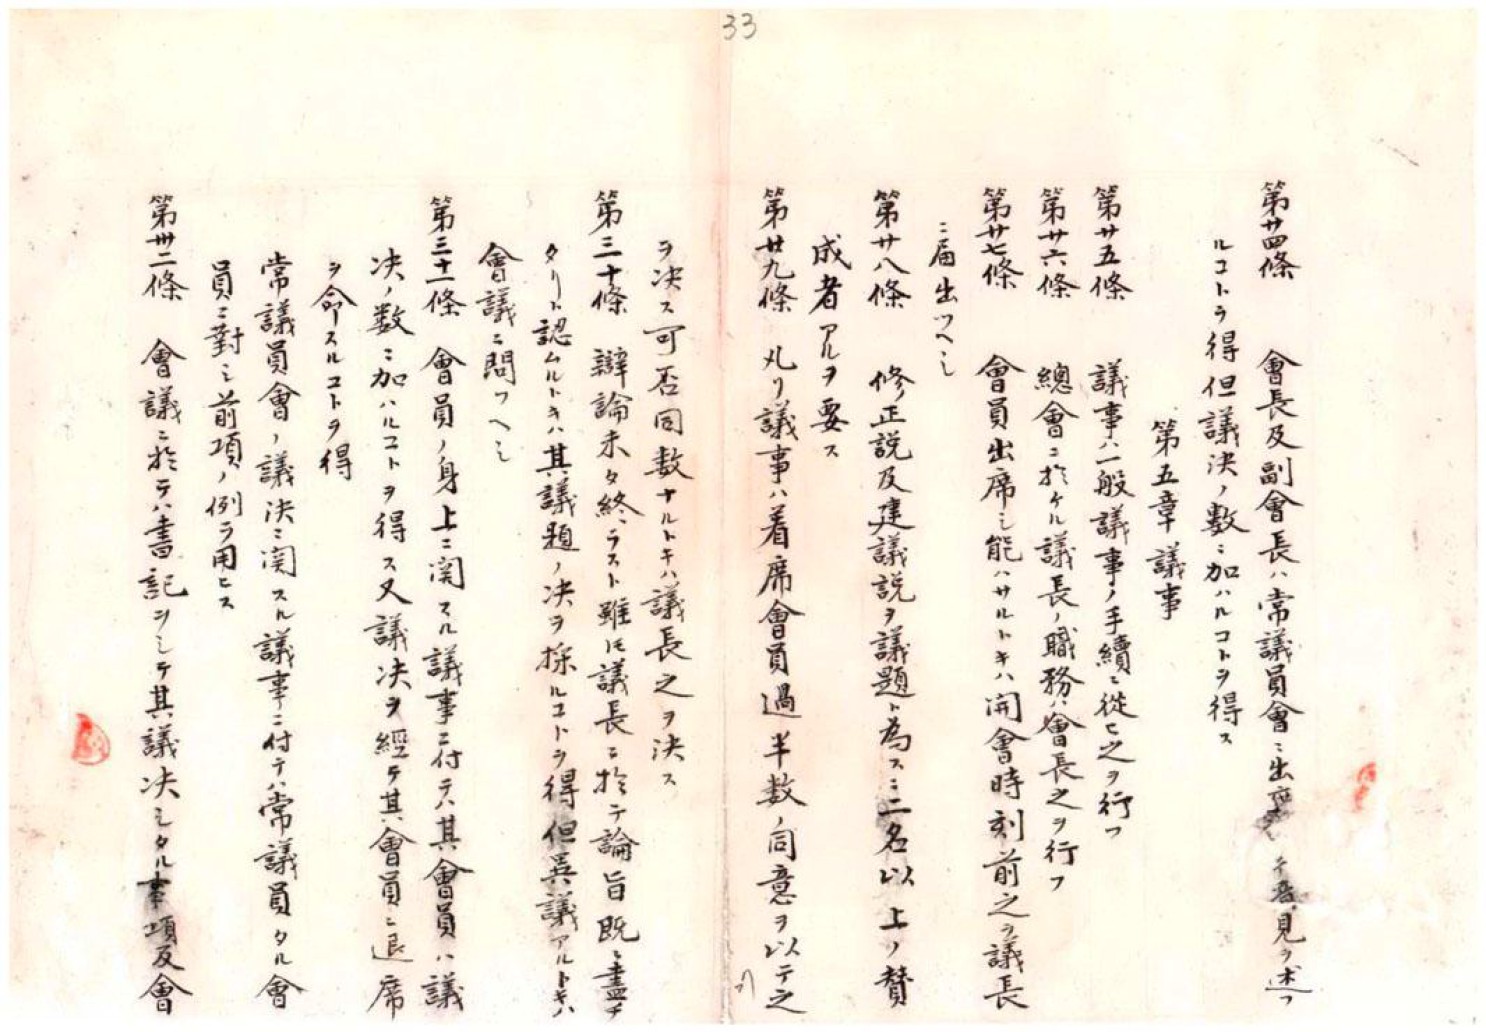 33
第廿四條 會長及副會長ハ常議員會ニ出席シテ意見ヲ述フ
ルコトヲ得但議決ノ數ニ加ハルコトヲ得ス
第五章 議事
第廿五條 議事ハ一般議事ノ手續ニ從ヒ之ヲ行フ
第廿六條 總會ニ於ケル議長ノ職務ハ會長之ヲ行フ
第廿七條 會員出席シ能ハサルトキハ開會時刻前之ヲ議長
ニ届出ツヘシ
第廿八條 修正説及建議説ヲ議題ト為スニ二名以上ノ賛
成者アルヲ要ス
第廿九條 凡リ議事ハ着席會員過半数ノ同意ヲ以テ之
ヲ決ス可否同数ナルトキハ議長之ヲ決ス
第三十條 辯論未タ終ラスト雖モ議長ニ於テ論旨既ニ盡キ
タリト認ムルトキハ其議題ノ决ヲ採ルコトヲ得但異議アルトキハ
會議ニ問フヘシ
第三十一條 會員ノ身上ニ関スル議事ニ付テハ其會員ハ議
决ノ数ニ加ハルコトヲ得ス又議决ヲ經テ其會員ニ退席
ヲ命スルコトヲ得
常議員會ノ議决ニ関スル議事ニ付テハ常議員タル會
員ニ對シ前項ノ例ヲ用ヒス
第卅二條 會議ニ於テハ書記ヲシテ其議决シタル事項及會